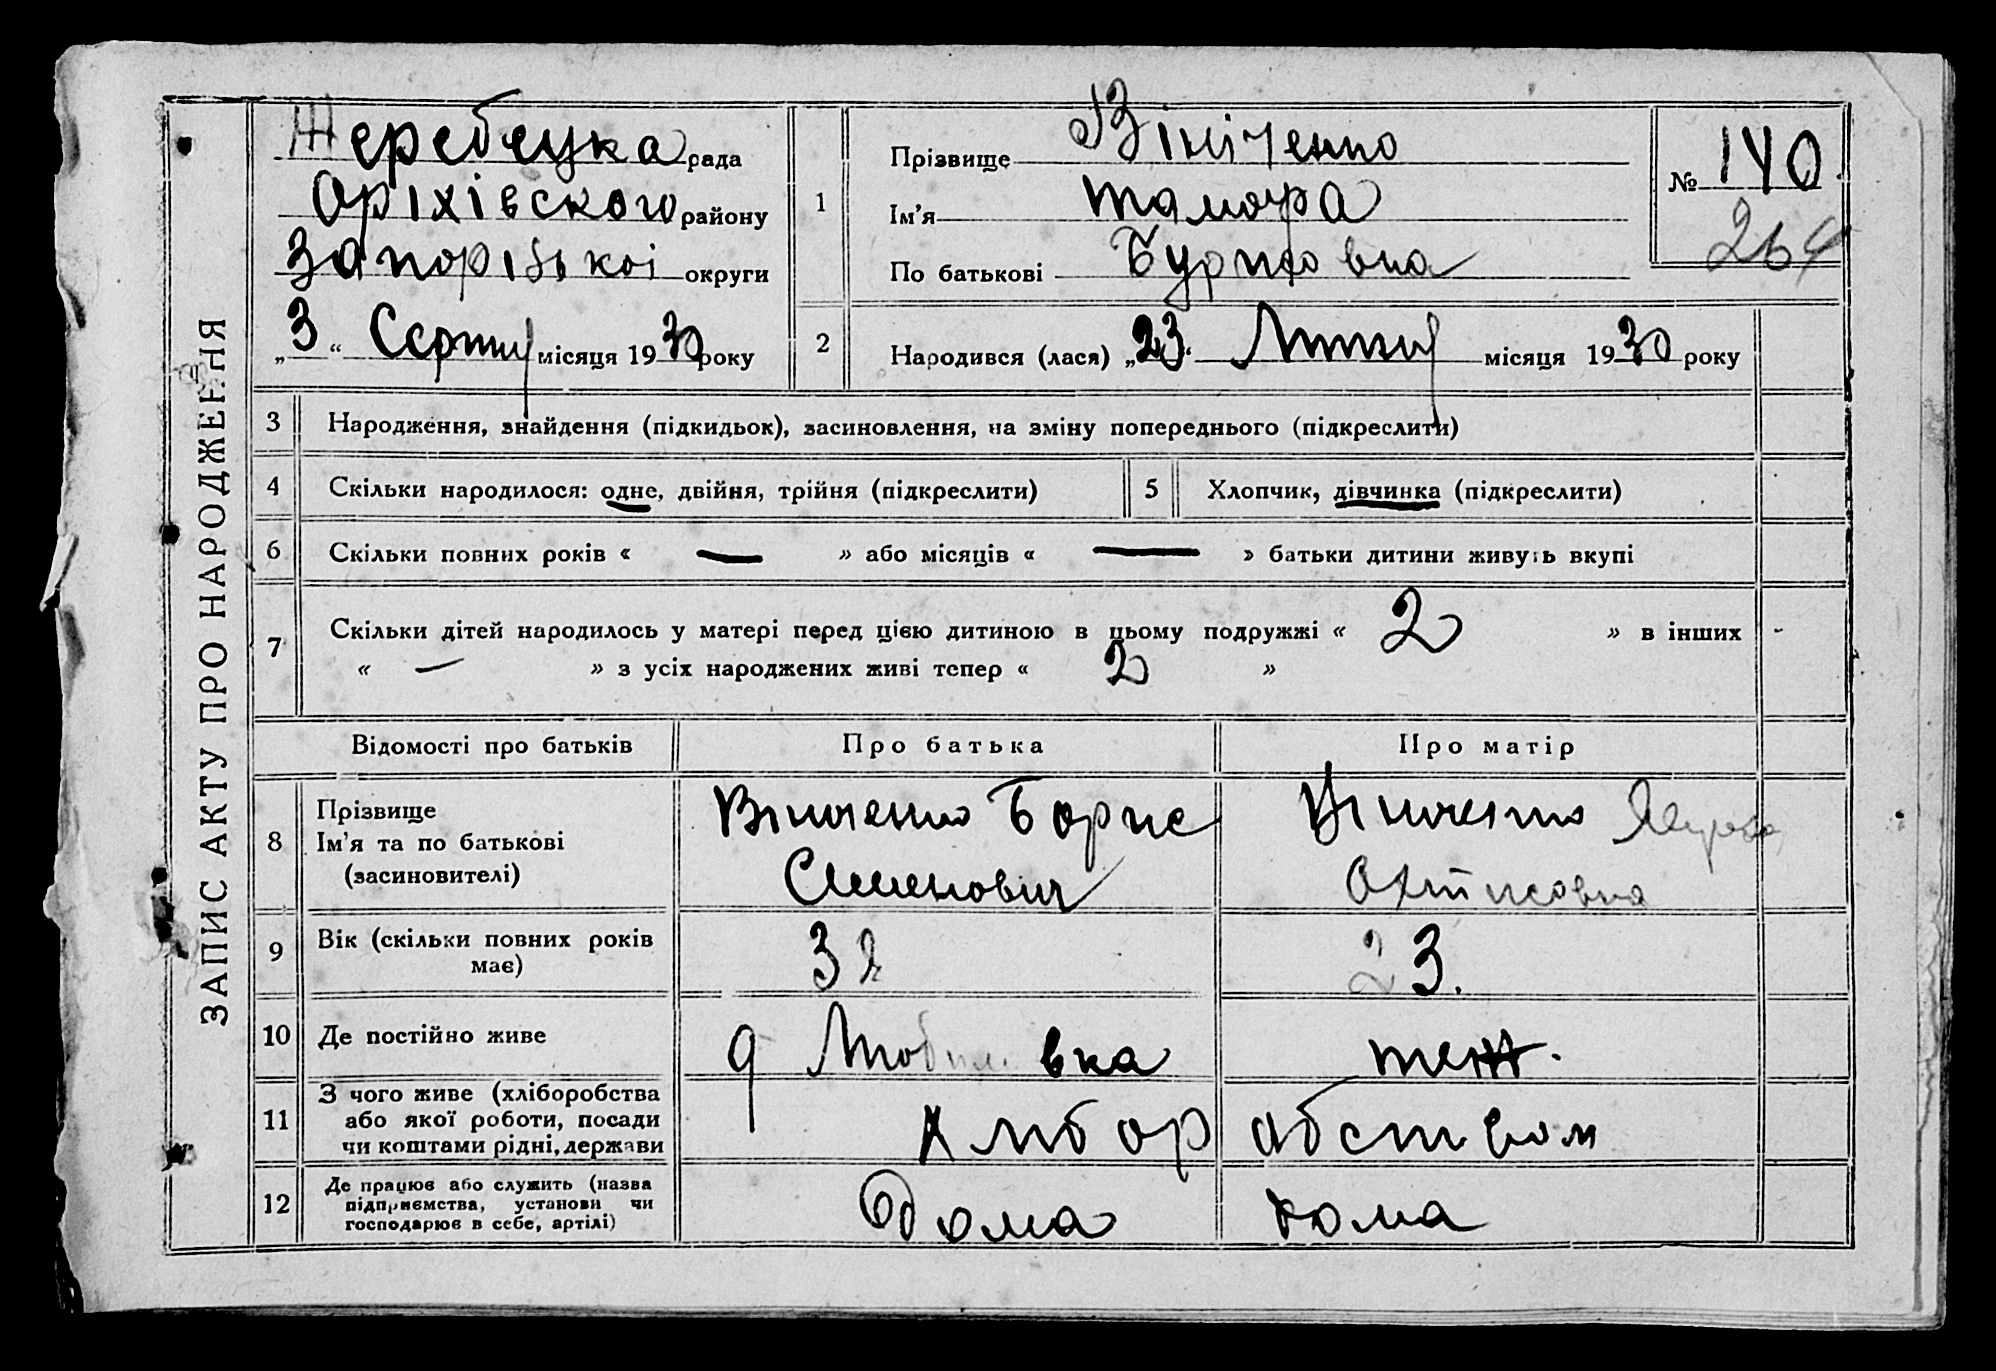 ЗАПИС АКТУ ПРО НАРОДЖЕННЯ
Жеребецька рада
Оріхівского району
Запоріжькоі округи
„3“ Серпня місяця 1930 року
1 Прізвище Вініченко
Ім'я Тамара
По батькові
№ 140
264
2 Народився (лася) „23. Лютня місяця 1930 року
3 Народження, знайдення (підкидьок), засиновлення, на зміну попереднього (підкреслити)
4 Скільки народилося: одне, двійня, трійня (підкреслити)
5 Хлопчик, дівчинка (підкреслити)
6 Скільки повних років « — » або місяців « — » батьки дитини живуть вкупі
7 Скільки дітей народилось у матері перед цією дитиною в цьому подружжі « 2 » в інших
« — » з усіх народжених живі тепер « 2 »
Відомості про батьків Про батька Про матір
8 Прізвище
Ім'я та по батькові
(засиновителі)
Вініченко Борис
Семенович
Вініченко
9 Вік (скільки повних років
має)
32
23.
10 Де постійно живе
теж.
11 З чого живе (хліборобства
або якої роботи, посади
чи коштами рідні, держави
Хліборабством
12 Де працює або служить (назва
підприємства, установи чи
господарює в себе, артілі)
дома
дома